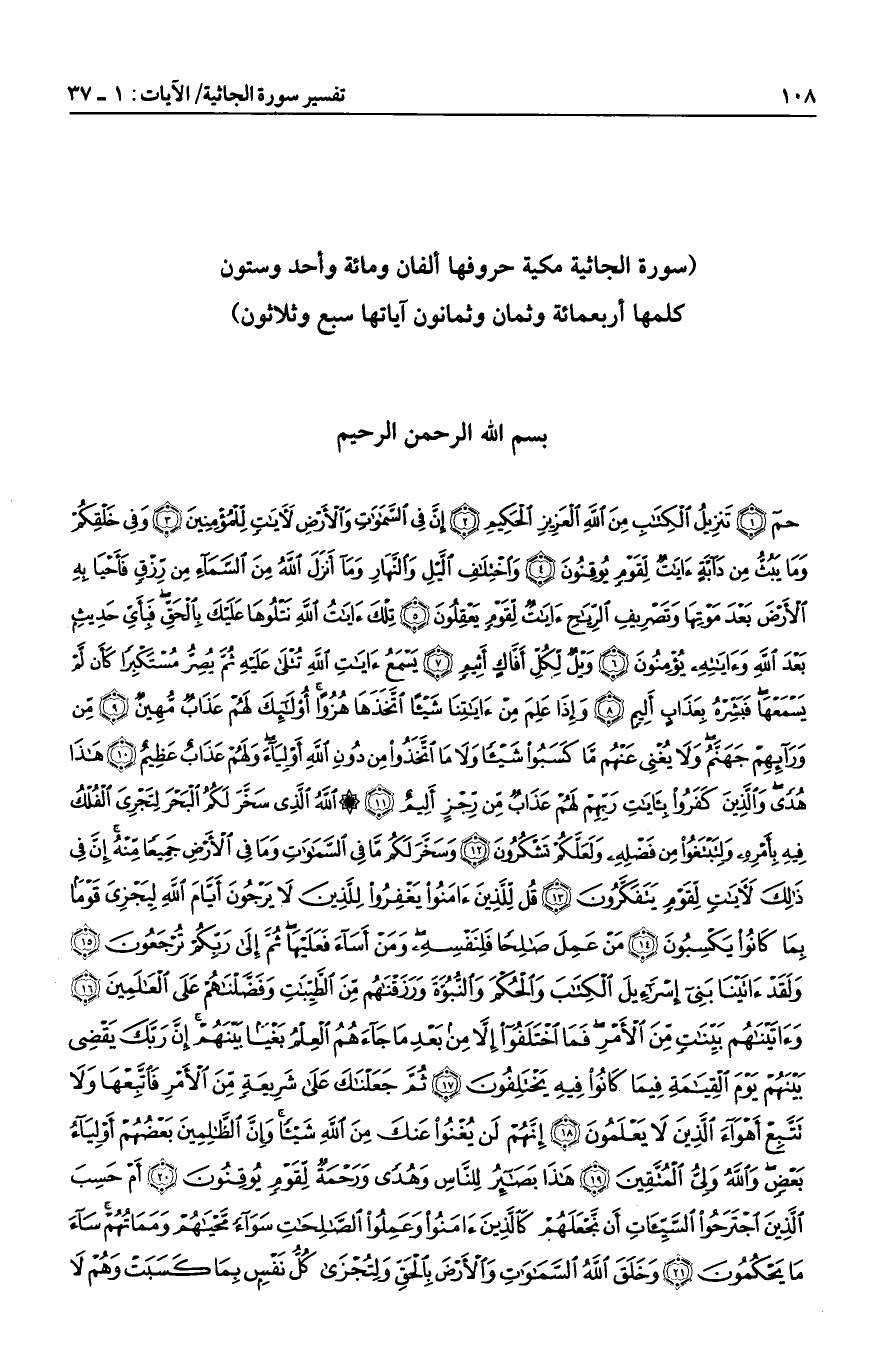 ١٠٨ تفسير سورة الجاثية/ الآيات: ١ - ٣٧
(سورة الجاثية مكية حروفها ألفان ومائة وأحد وستون
كلمها أربعمائة وثمان وثمانون آياتها سبع وثلاثون)
بسم الله الرحمن الرحيم
حمٓ ﴿١﴾ تَنزِيلُ ٱلْكِتَٰبِ مِنَ ٱللَّهِ ٱلْعَزِيزِ ٱلْحَكِيمِ ﴿٢﴾ إِنَّ فِى ٱلسَّمَٰوَٰتِ وَٱلْأَرْضِ لَءَايَٰتٍ لِّلْمُؤْمِنِينَ ﴿٣﴾ وَفِى خَلْقِكُمْ
وَمَا يَبُثُّ مِن دَآبَّةٍ ءَايَٰتٌ لِّقَوْمٍ يُوقِنُونَ ﴿٤﴾ وَٱخْتِلَٰفِ ٱلَّيْلِ وَٱلنَّهَارِ وَمَآ أَنزَلَ ٱللَّهُ مِنَ ٱلسَّمَآءِ مِن رِّزْقٍ فَأَحْيَا بِهِ
ٱلْأَرْضَ بَعْدَ مَوْتِهَا وَتَصْرِيفِ ٱلرِّيَٰحِ ءَايَٰتٌ لِّقَوْمٍ يَعْقِلُونَ ﴿٥﴾ تِلْكَ ءَايَٰتُ ٱللَّهِ نَتْلُوهَا عَلَيْكَ بِٱلْحَقِّۖ فَبِأَىِّ حَدِيثٍۭ
بَعْدَ ٱللَّهِ وَءَايَٰتِهِۦ يُؤْمِنُونَ ﴿٦﴾ وَيْلٌ لِّكُلِّ أَفَّاكٍ أَثِيمٍ ﴿٧﴾ يَسْمَعُ ءَايَٰتِ ٱللَّهِ تُتْلَىٰ عَلَيْهِ ثُمَّ يُصِرُّ مُسْتَكْبِرًا كَأَن لَّمْ
يَسْمَعْهَاۖ فَبَشِّرْهُ بِعَذَابٍ أَلِيمٍ ﴿٨﴾ وَإِذَا عَلِمَ مِنْ ءَايَٰتِنَا شَيْـًٔا ٱتَّخَذَهَا هُزُوًاۚ أُو۟لَٰٓئِكَ لَهُمْ عَذَابٌ مُّهِينٌ ﴿٩﴾ مِّن
وَرَآئِهِمْ جَهَنَّمُۖ وَلَا يُغْنِى عَنْهُم مَّا كَسَبُوا۟ شَيْـًٔا وَلَا مَا ٱتَّخَذُوا۟ مِن دُونِ ٱللَّهِ أَوْلِيَآءَۖ وَلَهُمْ عَذَابٌ عَظِيمٌ ﴿١٠﴾ هَٰذَا
هُدًىۖ وَٱلَّذِينَ كَفَرُوا۟ بِـَٔايَٰتِ رَبِّهِمْ لَهُمْ عَذَابٌ مِّن رِّجْزٍ أَلِيمٌ ﴿١١﴾ ۞ ٱللَّهُ ٱلَّذِى سَخَّرَ لَكُمُ ٱلْبَحْرَ لِتَجْرِىَ ٱلْفُلْكُ
فِيهِ بِأَمْرِهِۦ وَلِتَبْتَغُوا۟ مِن فَضْلِهِۦ وَلَعَلَّكُمْ تَشْكُرُونَ ﴿١٢﴾ وَسَخَّرَ لَكُم مَّا فِى ٱلسَّمَٰوَٰتِ وَمَا فِى ٱلْأَرْضِ جَمِيعًا مِّنْهُۚ إِنَّ فِى
ذَٰلِكَ لَءَايَٰتٍ لِّقَوْمٍ يَتَفَكَّرُونَ ﴿١٣﴾ قُل لِّلَّذِينَ ءَامَنُوا۟ يَغْفِرُوا۟ لِلَّذِينَ لَا يَرْجُونَ أَيَّامَ ٱللَّهِ لِيَجْزِىَ قَوْمًۢا
بِمَا كَانُوا۟ يَكْسِبُونَ ﴿١٤﴾ مَنْ عَمِلَ صَٰلِحًا فَلِنَفْسِهِۦۖ وَمَنْ أَسَآءَ فَعَلَيْهَاۖ ثُمَّ إِلَىٰ رَبِّكُمْ تُرْجَعُونَ ﴿١٥﴾
وَلَقَدْ ءَاتَيْنَا بَنِىٓ إِسْرَٰٓءِيلَ ٱلْكِتَٰبَ وَٱلْحُكْمَ وَٱلنُّبُوَّةَ وَرَزَقْنَٰهُم مِّنَ ٱلطَّيِّبَٰتِ وَفَضَّلْنَٰهُمْ عَلَى ٱلْعَٰلَمِينَ ﴿١٦﴾
وَءَاتَيْنَٰهُم بَيِّنَٰتٍ مِّنَ ٱلْأَمْرِۖ فَمَا ٱخْتَلَفُوٓا۟ إِلَّا مِنۢ بَعْدِ مَا جَآءَهُمُ ٱلْعِلْمُ بَغْيًۢا بَيْنَهُمْۚ إِنَّ رَبَّكَ يَقْضِى
بَيْنَهُمْ يَوْمَ ٱلْقِيَٰمَةِ فِيمَا كَانُوا۟ فِيهِ يَخْتَلِفُونَ ﴿١٧﴾ ثُمَّ جَعَلْنَٰكَ عَلَىٰ شَرِيعَةٍ مِّنَ ٱلْأَمْرِ فَٱتَّبِعْهَا وَلَا
تَتَّبِعْ أَهْوَآءَ ٱلَّذِينَ لَا يَعْلَمُونَ ﴿١٨﴾ إِنَّهُمْ لَن يُغْنُوا۟ عَنكَ مِنَ ٱللَّهِ شَيْـًٔاۚ وَإِنَّ ٱلظَّٰلِمِينَ بَعْضُهُمْ أَوْلِيَآءُ
بَعْضٍۖ وَٱللَّهُ وَلِىُّ ٱلْمُتَّقِينَ ﴿١٩﴾ هَٰذَا بَصَٰٓئِرُ لِلنَّاسِ وَهُدًى وَرَحْمَةٌ لِّقَوْمٍ يُوقِنُونَ ﴿٢٠﴾ أَمْ حَسِبَ
ٱلَّذِينَ ٱجْتَرَحُوا۟ ٱلسَّيِّـَٔاتِ أَن نَّجْعَلَهُمْ كَٱلَّذِينَ ءَامَنُوا۟ وَعَمِلُوا۟ ٱلصَّٰلِحَٰتِ سَوَآءً مَّحْيَاهُمْ وَمَمَاتُهُمْۚ سَآءَ
مَا يَحْكُمُونَ ﴿٢١﴾ وَخَلَقَ ٱللَّهُ ٱلسَّمَٰوَٰتِ وَٱلْأَرْضَ بِٱلْحَقِّ وَلِتُجْزَىٰ كُلُّ نَفْسٍۭ بِمَا كَسَبَتْ وَهُمْ لَا